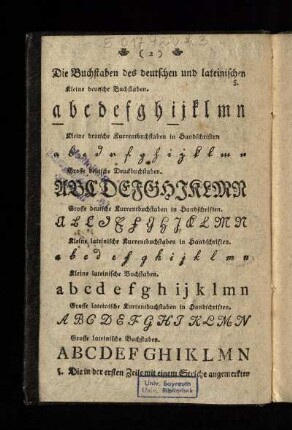 ( 2. )
Die Buchstaben des deutschen und lateinischen
Kleine deutsche Buchstaben.
a b c d e f g h i j k l m n
Kleine deutsche Kurrentbuchstaben in Handschriften
a b c d e f g h i j k l m n
Grosse deutsche Druckbuchstaben.
A B C D E F G H J K L M N
Grosse deutsche Kurrentbuchstaben in Handschriften.
Kleine lateinische Kurrentbuchstaben in Handschriften.
a b c d e f g h i j k l m n
Kleine lateinische Buchstaben.
a b c d e f g h i j k l m n
Grosse lateinische Kurrentbuchstaben in Handschriften.
A B C D E F G H I K L M N
Grosse lateinische Buchstaben.
A B C D E F G H I K L M N
§. Die in der ersten Zeile mit einem Striche angemerkten
Univ. Bayreuth
Univ. Bibliothek